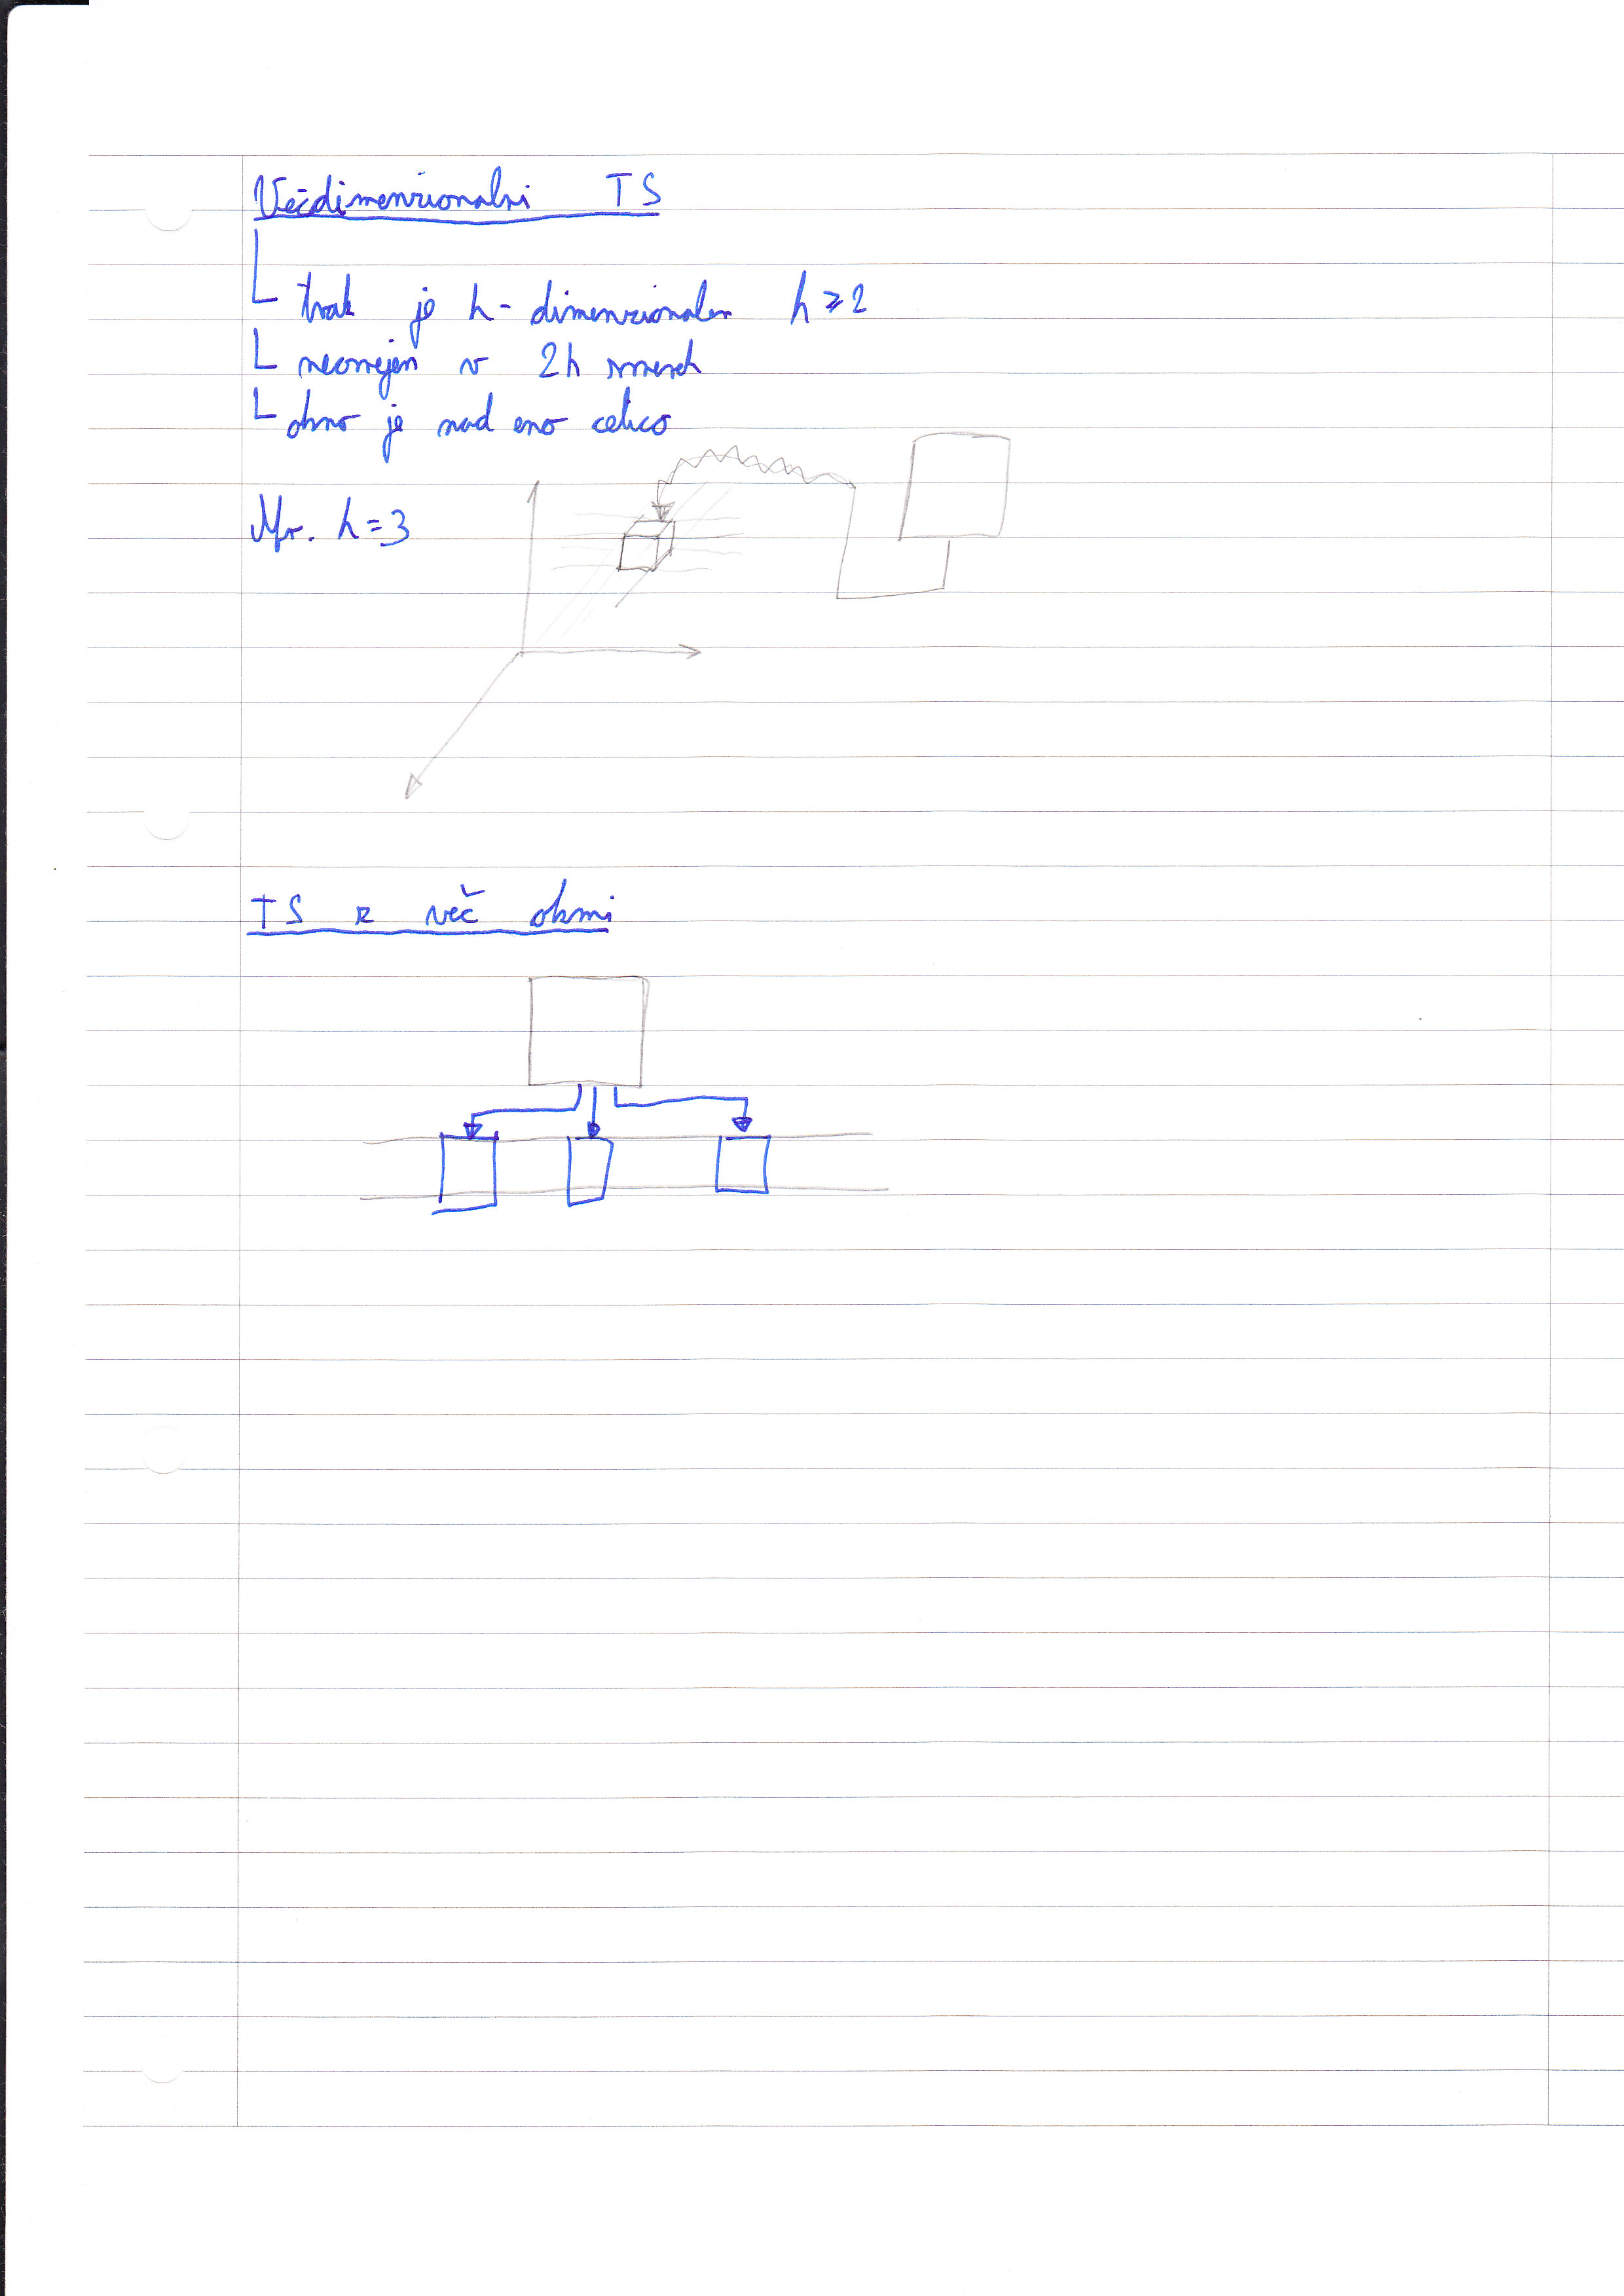 Večdimenzionalni TS
trak je h-dimenzionalen h ≥ 2
neomejen v 2h smereh
okno je nad eno celico
Npr. h=3
TS z več okni